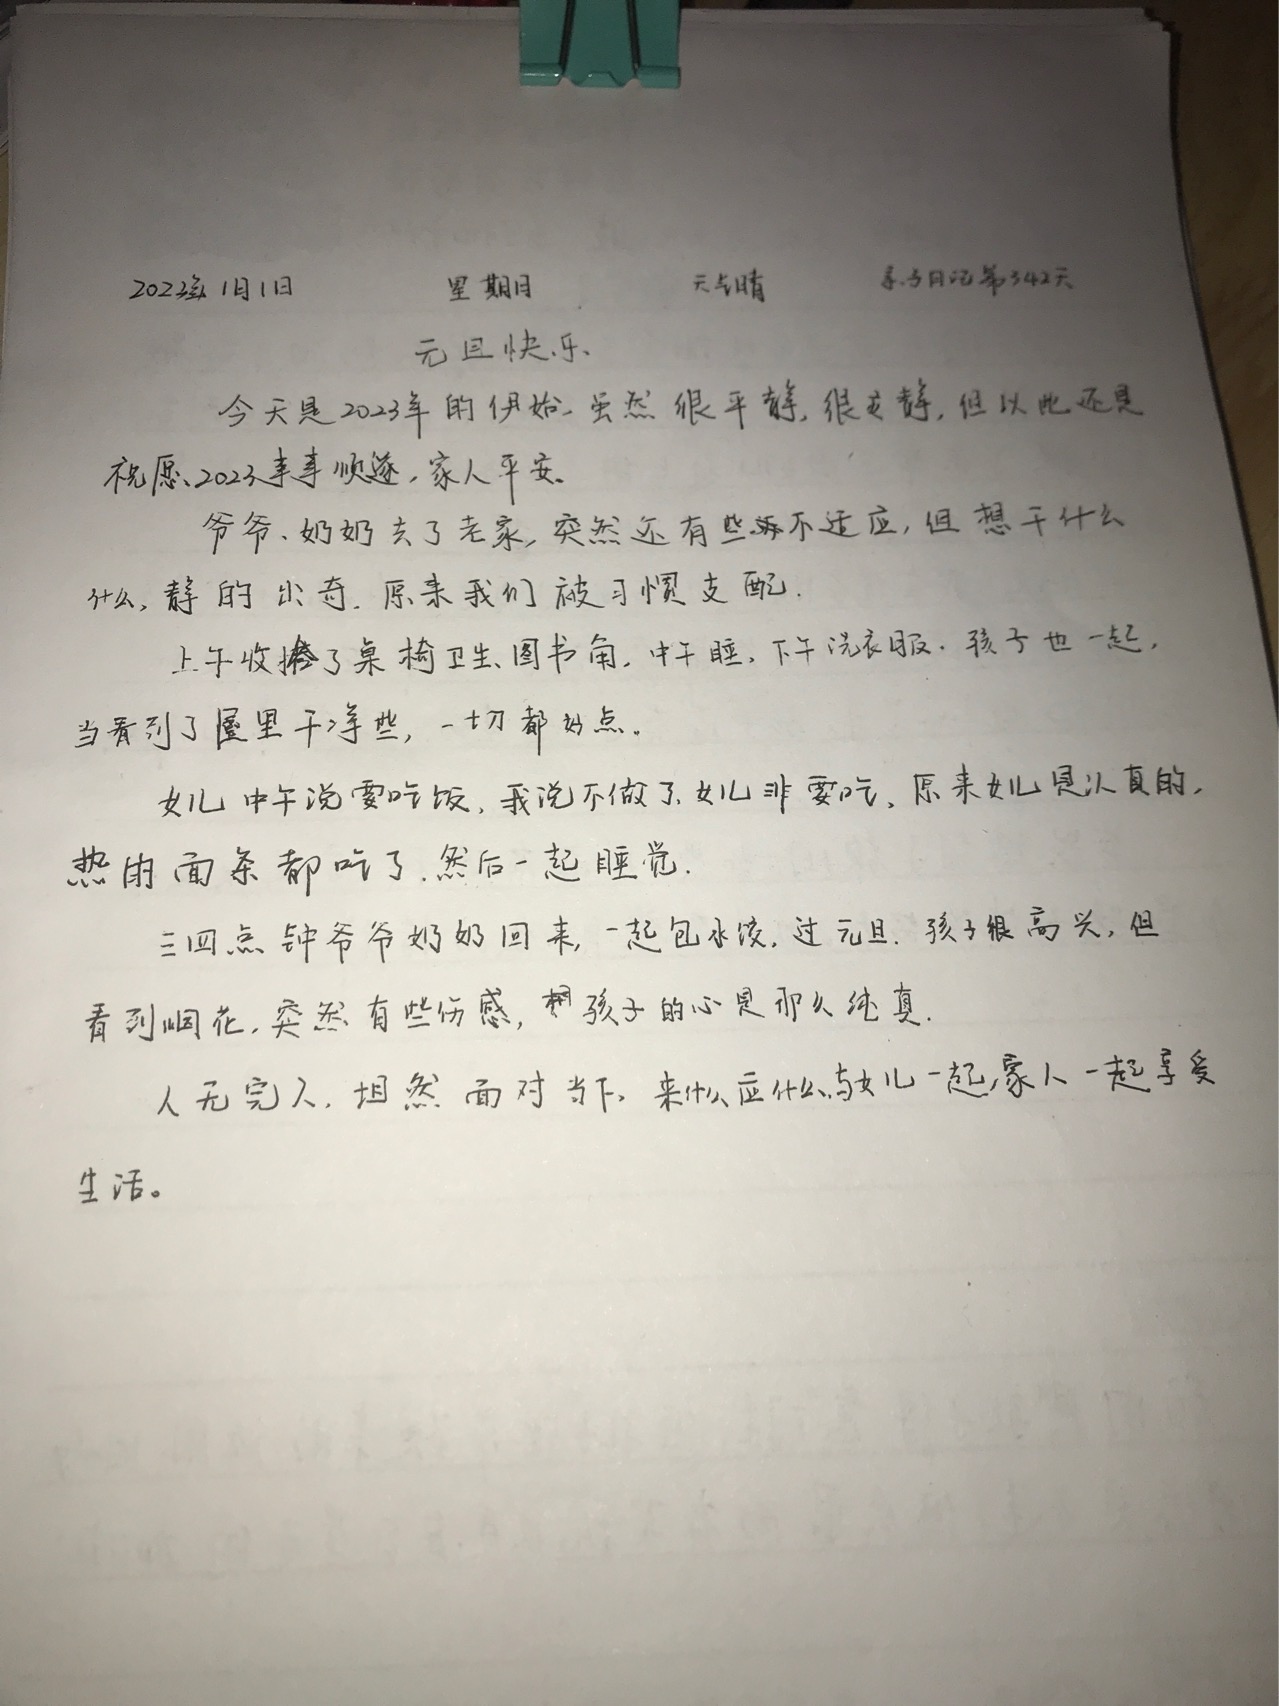 2023年1月1日 星期日 天气晴 亲子日记第342天
元旦快乐、
今天是2023年的伊始、虽然很平静，很安静，但以此还是
祝愿、2023事事顺遂，家人平安。
爷爷、奶奶去了老家，突然还有些不适应，但想干什么
什么，静的出奇．原来我们被习惯支配．
上午收拾了桌椅卫生、图书角，中午睡，下午洗衣服．孩子也一起，
当看到了屋里干净些，一切都好点。
女儿中午说要吃饭，我说不做了、女儿非要吃、原来女儿是认真的，
热的面条都吃了．然后一起睡觉．
三四点钟爷爷奶奶回来，一起包水饺，过元旦．孩子很高兴，但
看到烟花，突然有些伤感，孩子的心是那么纯真．
人无完人，坦然面对当下、来什么应什么、与女儿一起，家人一起享受
生活。